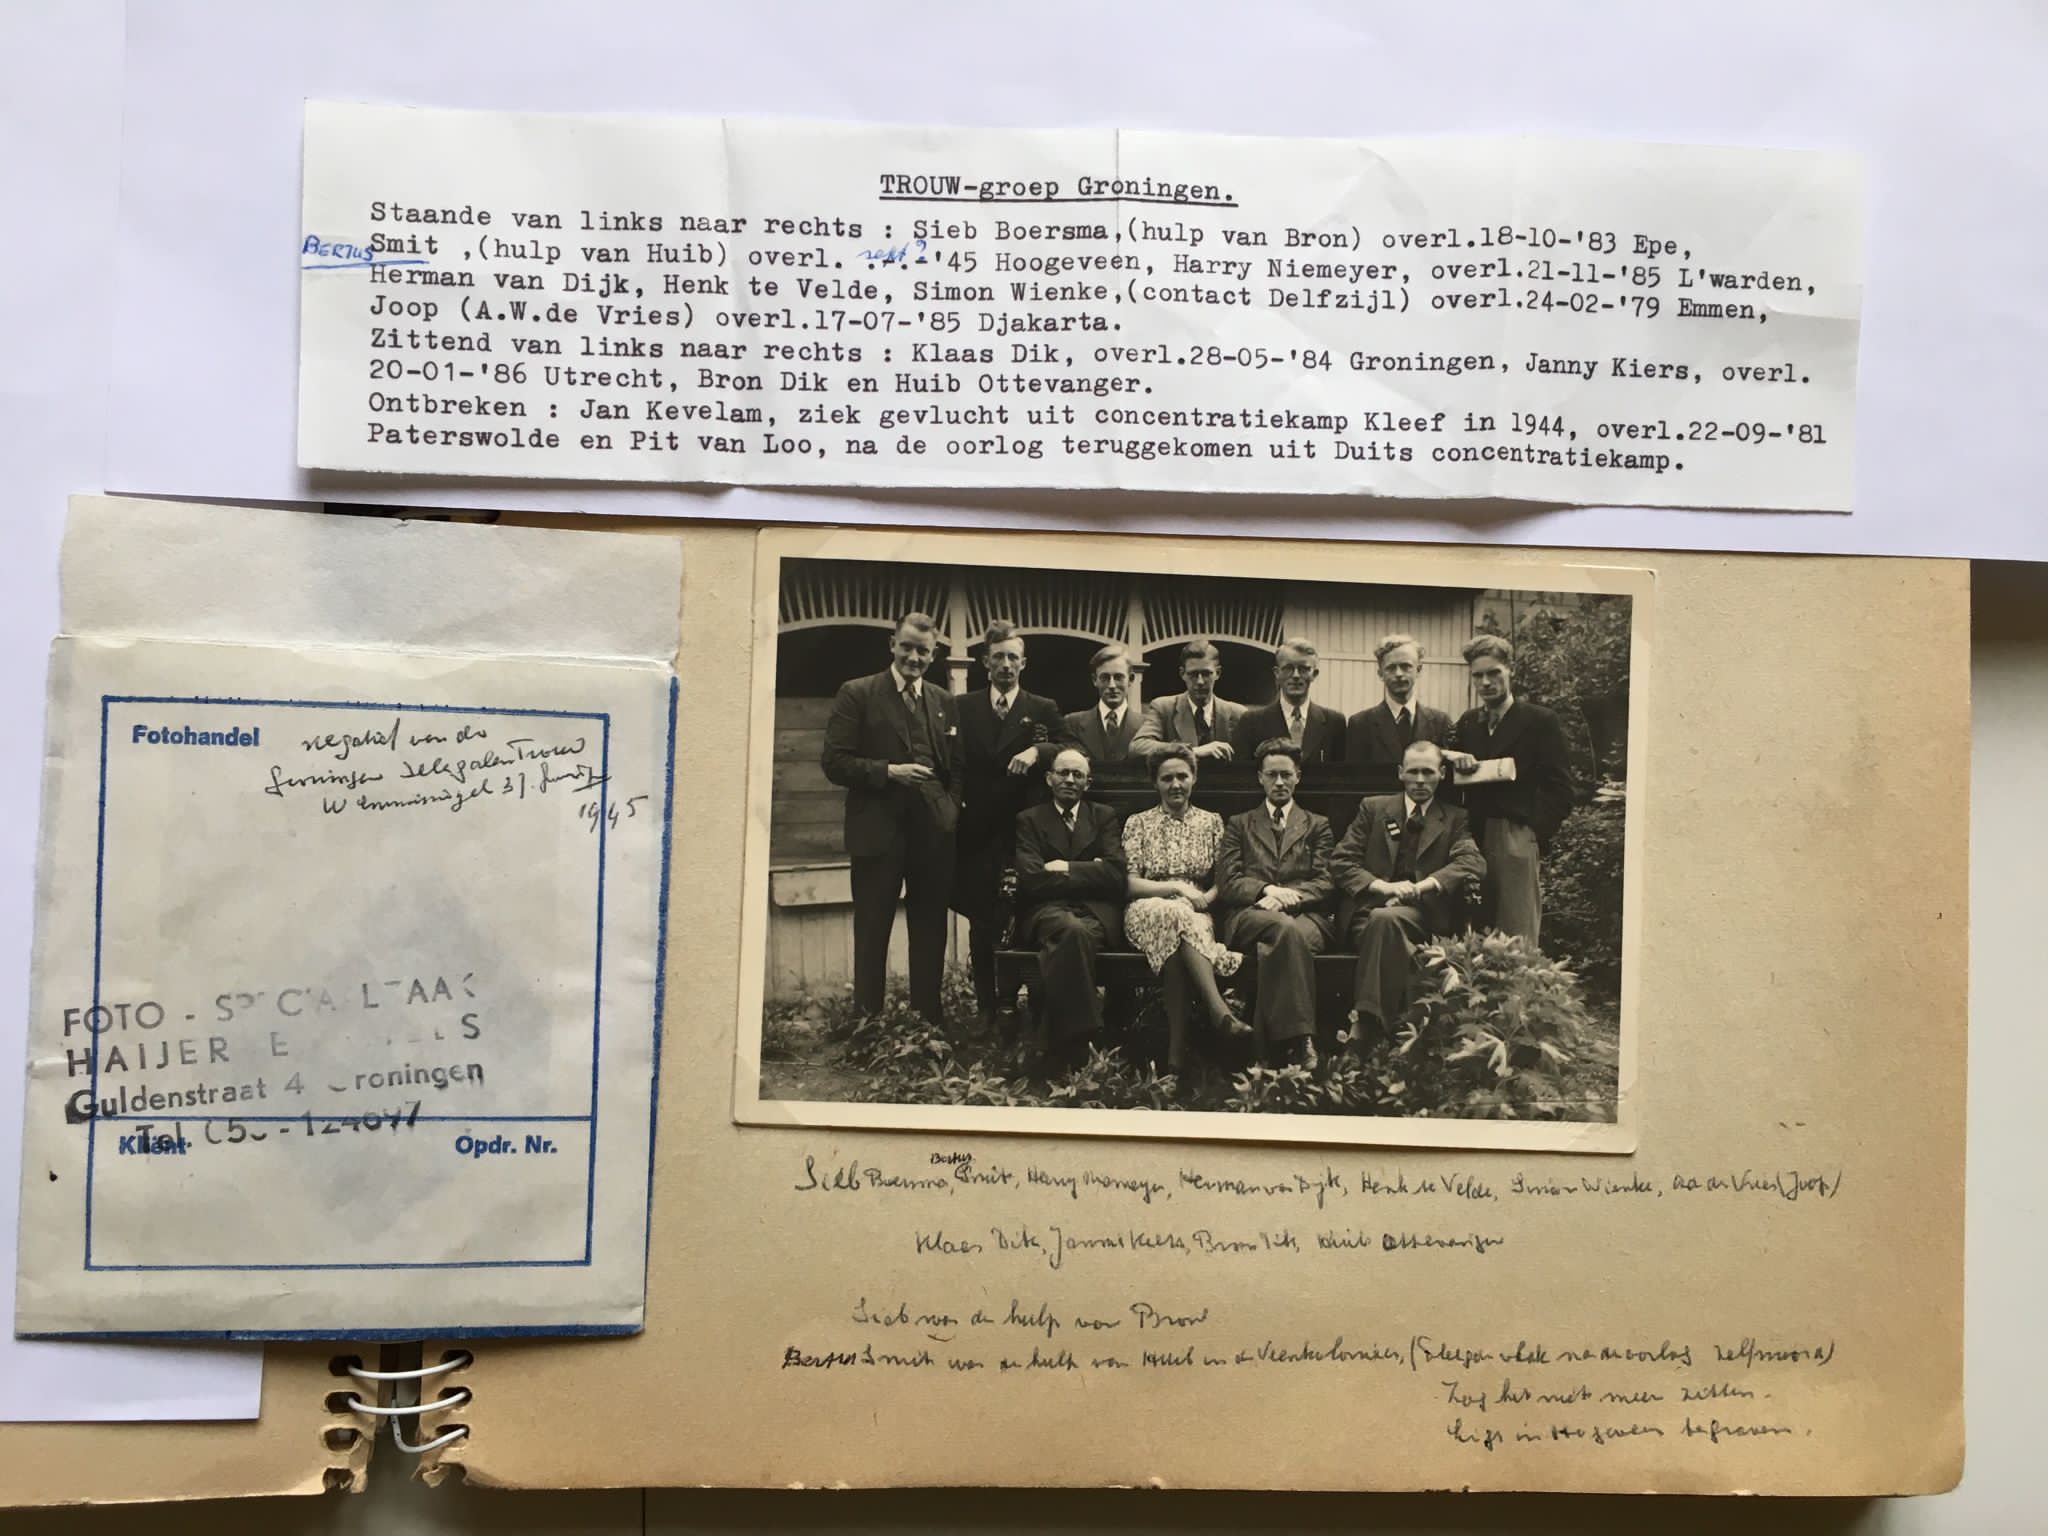 TROUW-groep Groningen.
Staande van links naar rechts : Sieb Boersma,(hulp van Bron) overl.18-10-'83 Epe,
BERTUS Smit ,(hulp van Huib) overl. sept? .-.-'45 Hoogeveen, Harry Niemeyer, overl.21-11-'85 L'warden,
Herman van Dijk, Henk te Velde, Simon Wienke,(contact Delfzijl) overl.24-02-'79 Emmen,
Joop (A.W.de Vries) overl.17-07-'85 Djakarta.
Zittend van links naar rechts : Klaas Dik, overl.28-05-'84 Groningen, Janny Kiers, overl.
20-01-'86 Utrecht, Bron Dik en Huib Ottevanger.
Ontbreken : Jan Kevelam, ziek gevlucht uit concentratiekamp Kleef in 1944, overl.22-09-'81
Paterswolde en Pit van Loo, na de oorlog teruggekomen uit Duits concentratiekamp.
Fotohandel
negatief van de
Groningen Trouw
1945
FOTO -
HAIJER
Guldenstraat 4 Groningen
Tel.
Kliënt
Opdr. Nr.
Sieb Boersma, Bertus Smit, Harry Niemeyer, Herman van Dijk, Henk te Velde, Simon Wienke, de Vries (Joop)
Klaas Dik, Kiers, Bron Dik, Huib Ottevanger
Sieb was de hulp van Bron
Bertus Smit was de hulp van Huib in de Veenkolonien, ( vlak na de oorlog zelfmoord)
Zag het niet meer zitten.
Ligt in Hogeveen begraven.